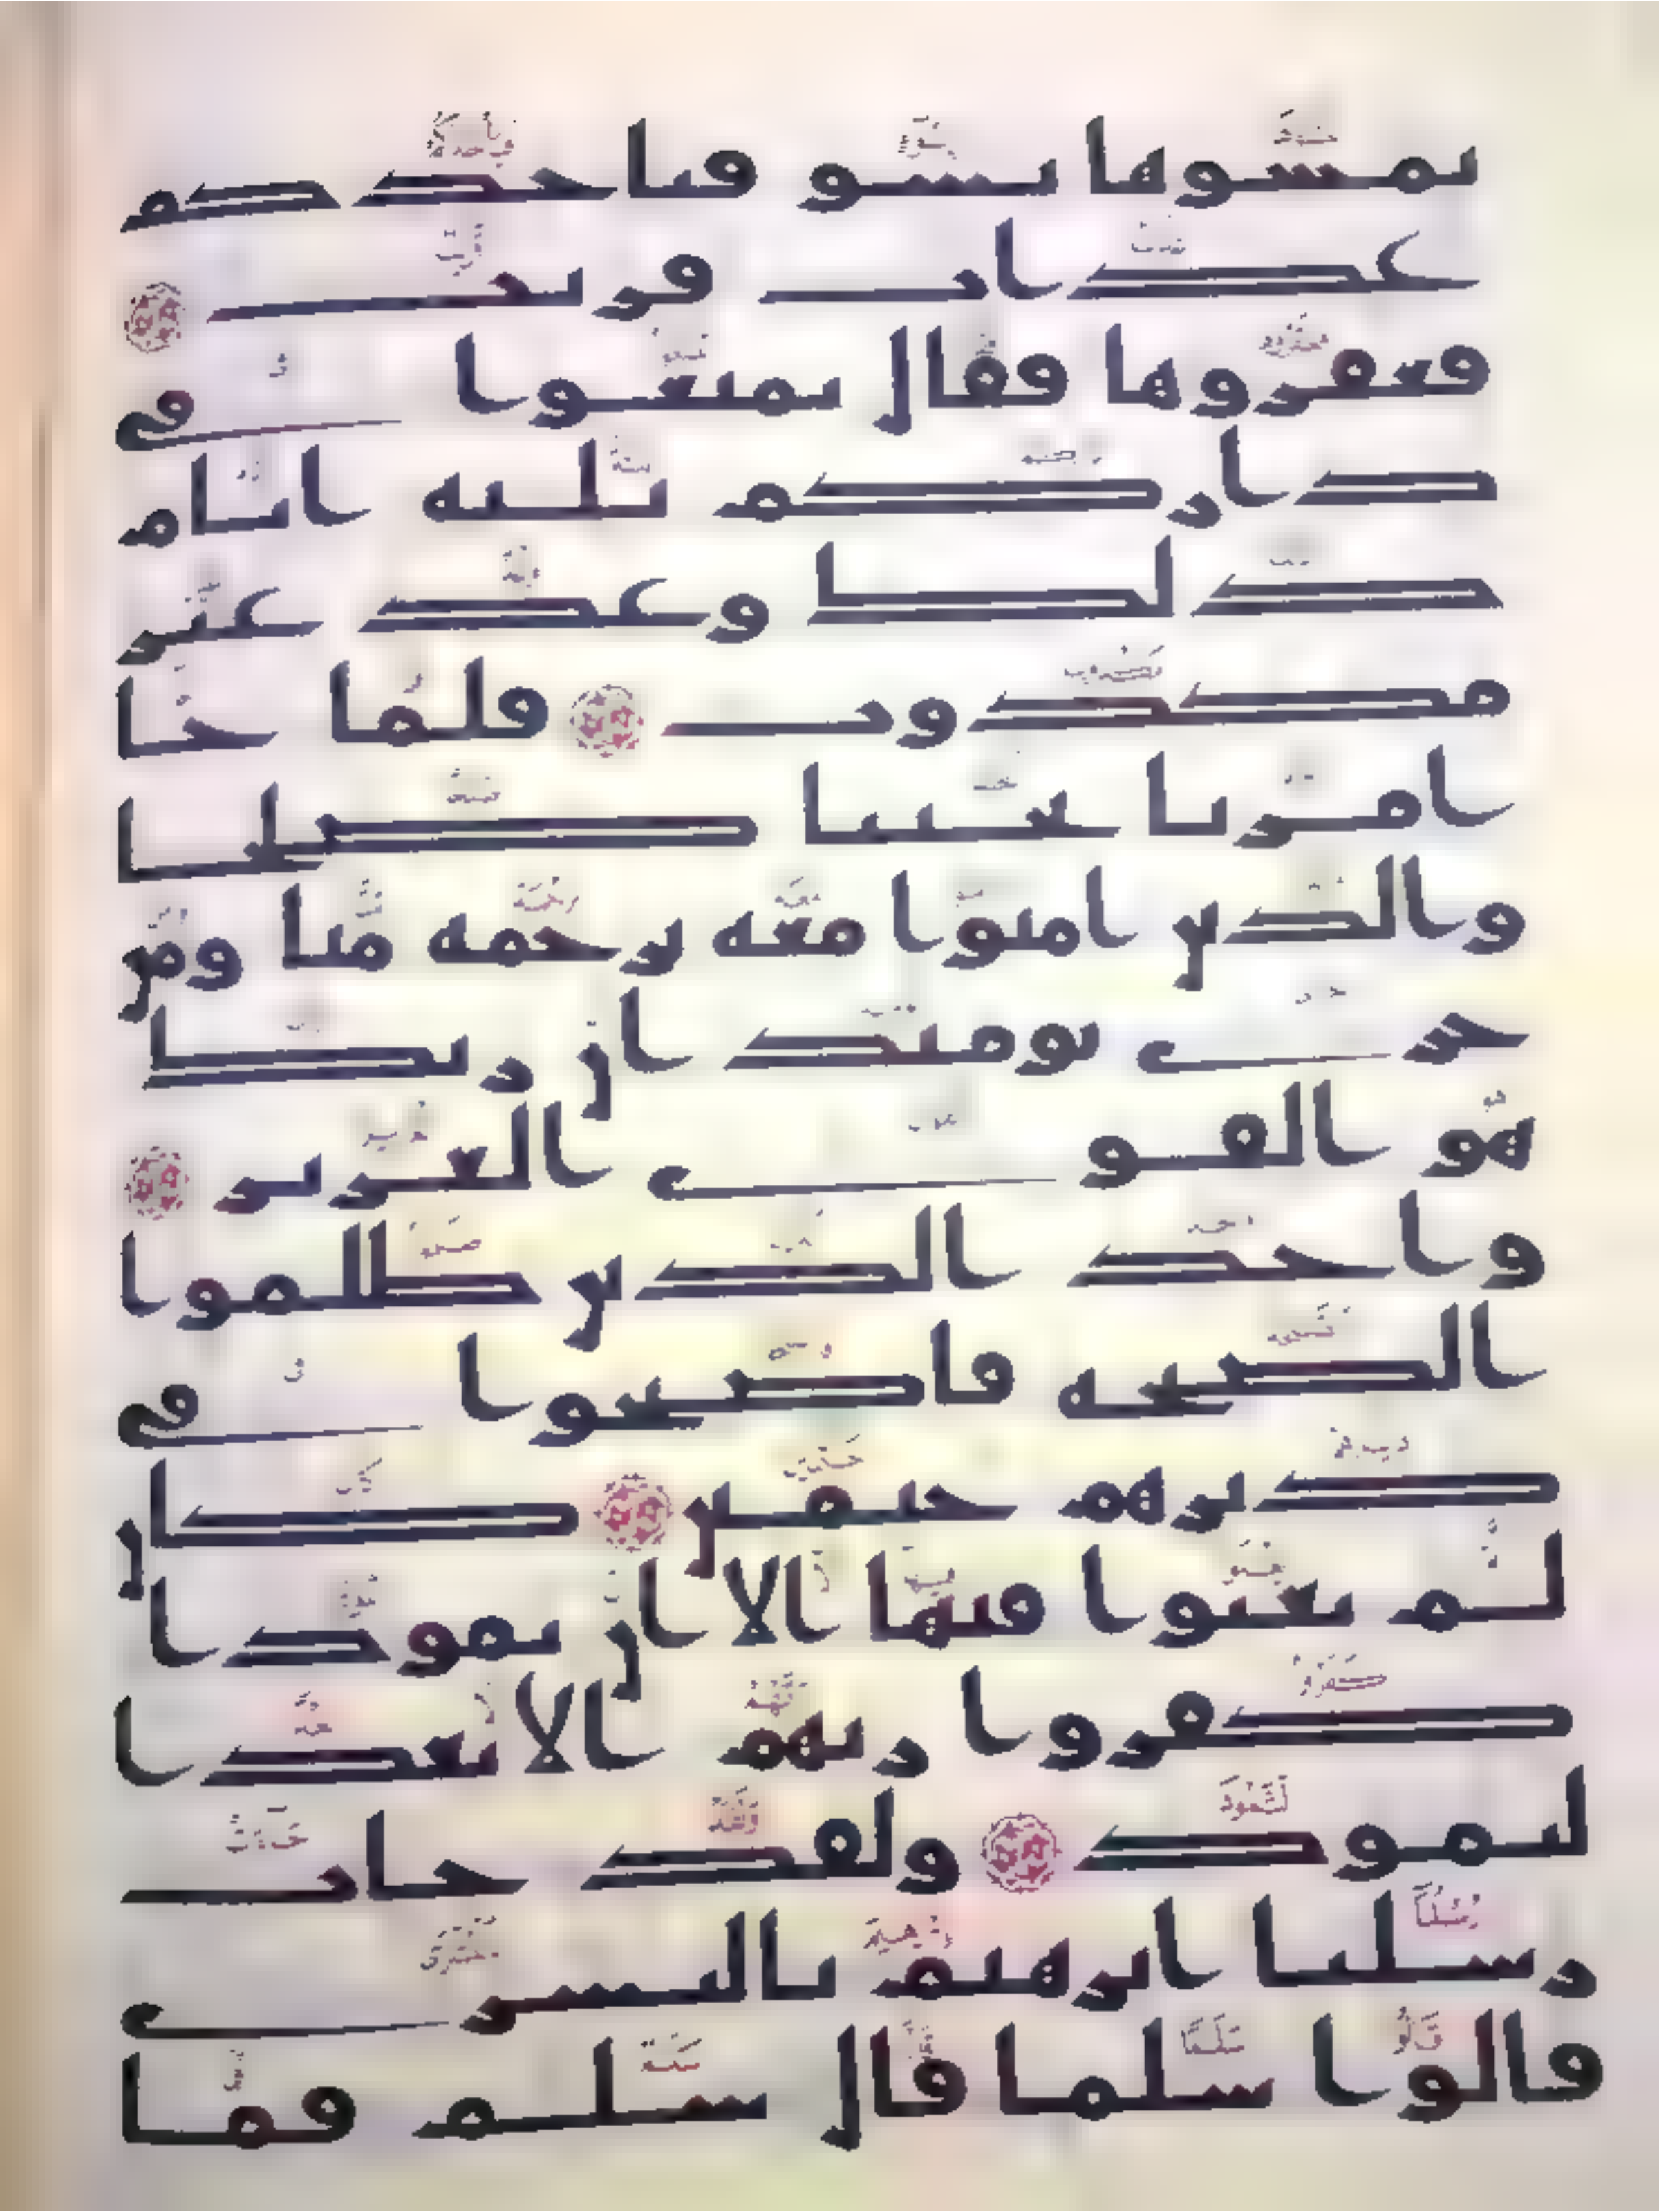 تمسوها بسو فياخذكم
عذاب قريب
فعقروها فقال تمتعوا في
داركم ثلثة ايام
ذلك وعد غير
مكذوب فلما جا
امرنا نجينا صلحا
والذين امنوا معه برحمة منا ومن
خزي يومئذ ان ربك
هو القوي العزيز
واخذ الذين ظلموا
الصيحة فاصبحوا في
ديرهم جثمين كان
لم يغنوا فيها الا ان ثمودا
كفروا ربهم الا بعدا
لثمود ولقد جات
رسلنا ابرهيم بالبشرى
قالوا سلما قال سلم فما